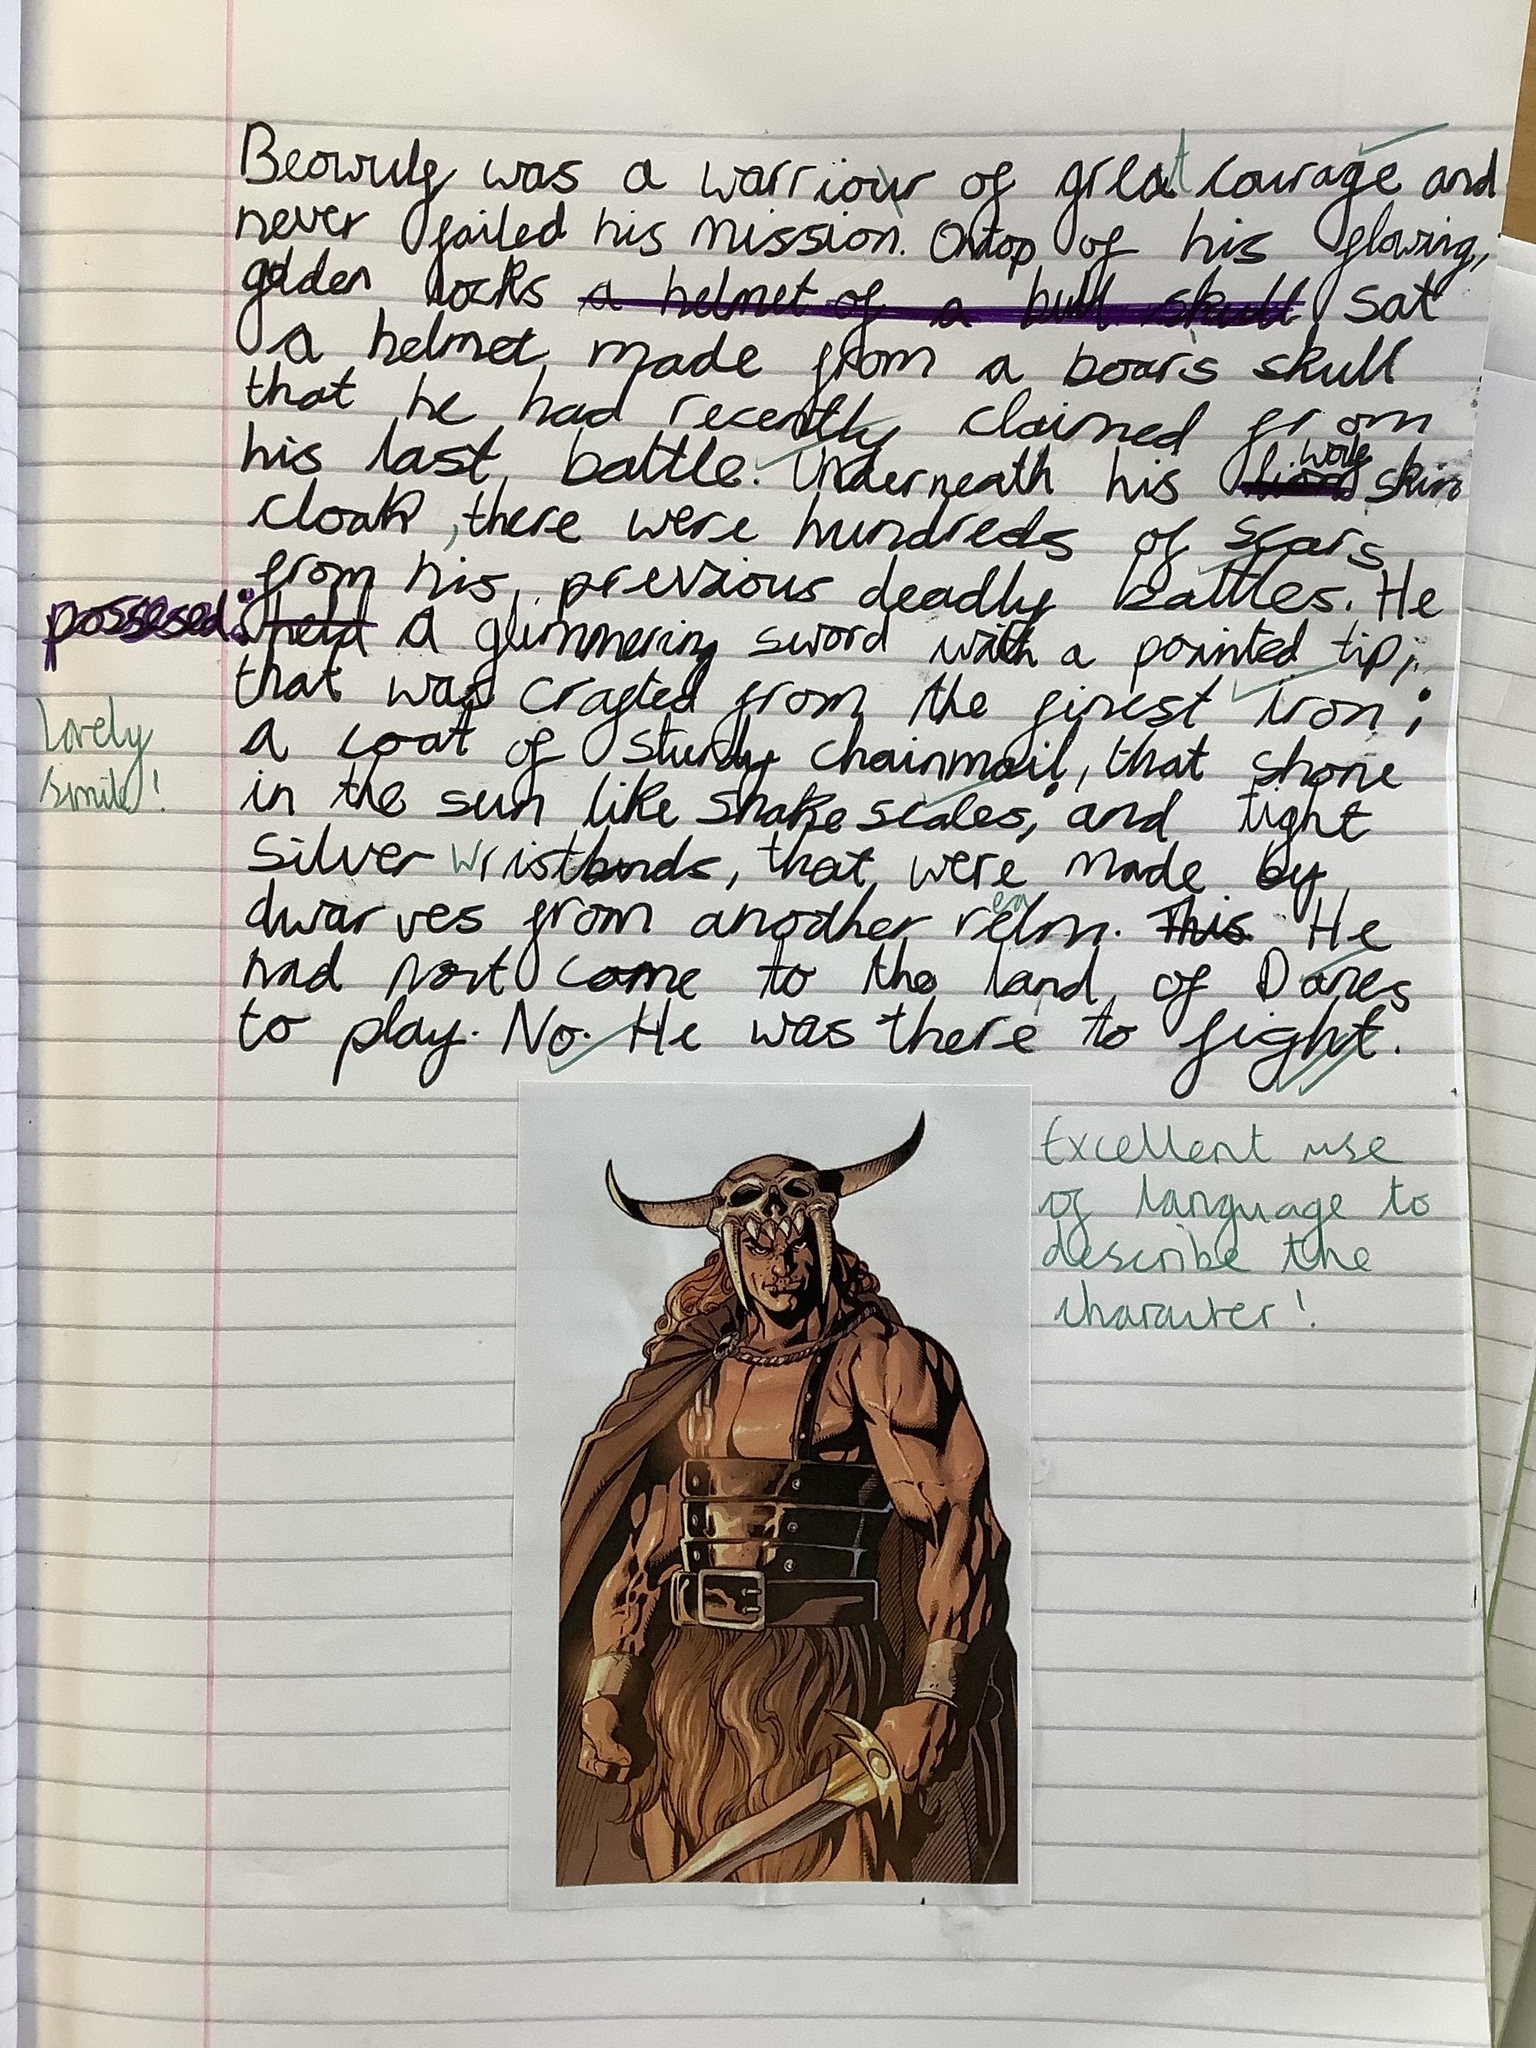 Beowulf was a warriour of great courage and
never failed his mission. Ontop of his flowing,
golden locks a helmet of a bull skull sat
a helmet made from a boar's skull
that he had recently claimed from
his last battle. Underneath his lion wolf skin
cloak, there were hundreds of scars
from his previous deadly battles. He
possesed: held a glimmering sword with a pointed tip,
that was crafted from the finest iron;
a coat of sturdy chainmail, that shone
in the sun like snake scales; and tight
silver wristbands, that were made by
dwarves from another relm. This He
ea
had not come to the land of Danes
to play. No. He was there to fight.
Lovely
simile!
Excellent use
of language to
describe the
character!